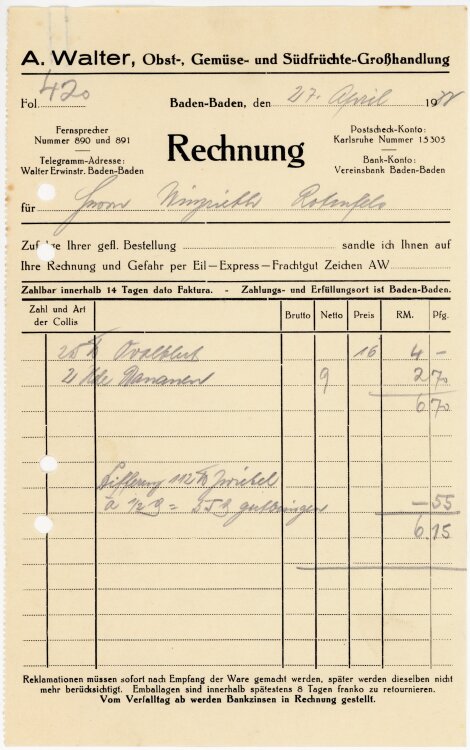 A. Walter, Obst-, Gemüse- und Südfrüchte-Großhandlung
Fol. 420 Baden-Baden, den 27. April 19
Fernsprecher
Nummer 890 und 891
Telegramm-Adresse:
Walter Erwinstr. Baden-Baden
Rechnung
Postscheck-Konto:
Karlsruhe Nummer 15305
Bank-Konto:
Vereinsbank Baden-Baden
für Herrn Rotenfels
Zufolge Ihrer gefl. Bestellung sandte ich Ihnen auf
Ihre Rechnung und Gefahr per Eil—Express—Frachtgut Zeichen AW
Zahlbar innerhalb 14 Tagen dato Faktura. - Zahlungs- und Erfüllungsort ist Baden-Baden.
Zahl und Art der Collis Brutto Netto Preis RM. Pfg.
25 16 4 –
Bananen 9 2 70
6 70
112 Zwiebel
à ½ — 55
6.15
Reklamationen müssen sofort nach Empfang der Ware gemacht werden, später werden dieselben nicht
mehr berücksichtigt. Emballagen sind innerhalb spätestens 8 Tagen franko zu retournieren.
Vom Verfalltag ab werden Bankzinsen in Rechnung gestellt.